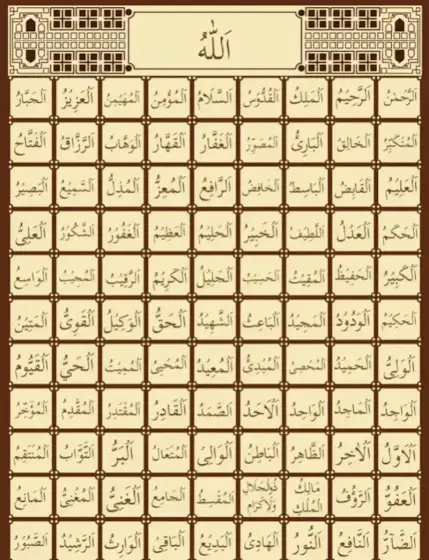 اَللّٰهُ
اَلرَّحْمٰنُ اَلرَّحِيْمُ اَلْمَلِكُ اَلْقُدُّوْسُ اَلسَّلَامُ اَلْمُؤْمِنُ اَلْمُهَيْمِنُ اَلْعَزِيْزُ اَلْجَبَّارُ
اَلْمُتَكَبِّرُ اَلْخَالِقُ اَلْبَارِئُ اَلْمُصَوِّرُ اَلْغَفَّارُ اَلْقَهَّارُ اَلْوَهَّابُ اَلرَّزَّاقُ اَلْفَتَّاحُ
اَلْعَلِيْمُ اَلْقَابِضُ اَلْبَاسِطُ اَلْخَافِضُ اَلرَّافِعُ اَلْمُعِزُّ اَلْمُذِلُّ اَلسَّمِيْعُ اَلْبَصِيْرُ
اَلْحَكَمُ اَلْعَدْلُ اَللَّطِيْفُ اَلْخَبِيْرُ اَلْحَلِيْمُ اَلْعَظِيْمُ اَلْغَفُوْرُ اَلشَّكُوْرُ اَلْعَلِىُّ
اَلْكَبِيْرُ اَلْحَفِيْظُ اَلْمُقِيْتُ اَلْحَسِيْبُ اَلْجَلِيْلُ اَلْكَرِيْمُ اَلرَّقِيْبُ اَلْمُجِيْبُ اَلْوَاسِعُ
اَلْحَكِيْمُ اَلْوَدُوْدُ اَلْمَجِيْدُ اَلْبَاعِثُ اَلشَّهِيْدُ اَلْحَقُّ اَلْوَكِيْلُ اَلْقَوِىُّ اَلْمَتِيْنُ
اَلْوَلِىُّ اَلْحَمِيْدُ اَلْمُحْصِىُ اَلْمُبْدِئُ اَلْمُعِيْدُ اَلْمُحْيِىُ اَلْمُمِيْتُ اَلْحَىُّ اَلْقَيُّوْمُ
اَلْوَاجِدُ اَلْمَاجِدُ اَلْوَاحِدُ اَلْاَحَدُ اَلصَّمَدُ اَلْقَادِرُ اَلْمُقْتَدِرُ اَلْمُقَدِّمُ اَلْمُؤَخِّرُ
اَلْاَوَّلُ اَلْاٰخِرُ اَلظَّاهِرُ اَلْبَاطِنُ اَلْوَالِىُ اَلْمُتَعَالُ اَلْبَرُّ اَلتَّوَّابُ اَلْمُنْتَقِمُ
اَلْعَفُوُّ اَلرَّؤُفُ مَالِكُ الْمُلْكِ ذُوالْجَلَالِ وَالْاِكْرَامِ اَلْمُقْسِطُ اَلْجَامِعُ اَلْغَنِىُّ اَلْمُغْنِىُ اَلْمَانِعُ
اَلضَّآرُّ اَلنَّافِعُ اَلنُّوْرُ اَلْهَادِىُ اَلْبَدِيْعُ اَلْبَاقِىُ اَلْوَارِثُ اَلرَّشِيْدُ اَلصَّبُوْرُ